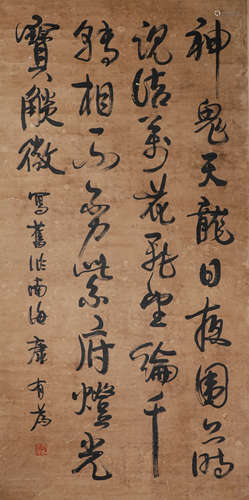 神鬼天龍日夜圍六時
說法萬花飛輪千
轉相紫府燈光
寶燄微 寫舊作南海康有為